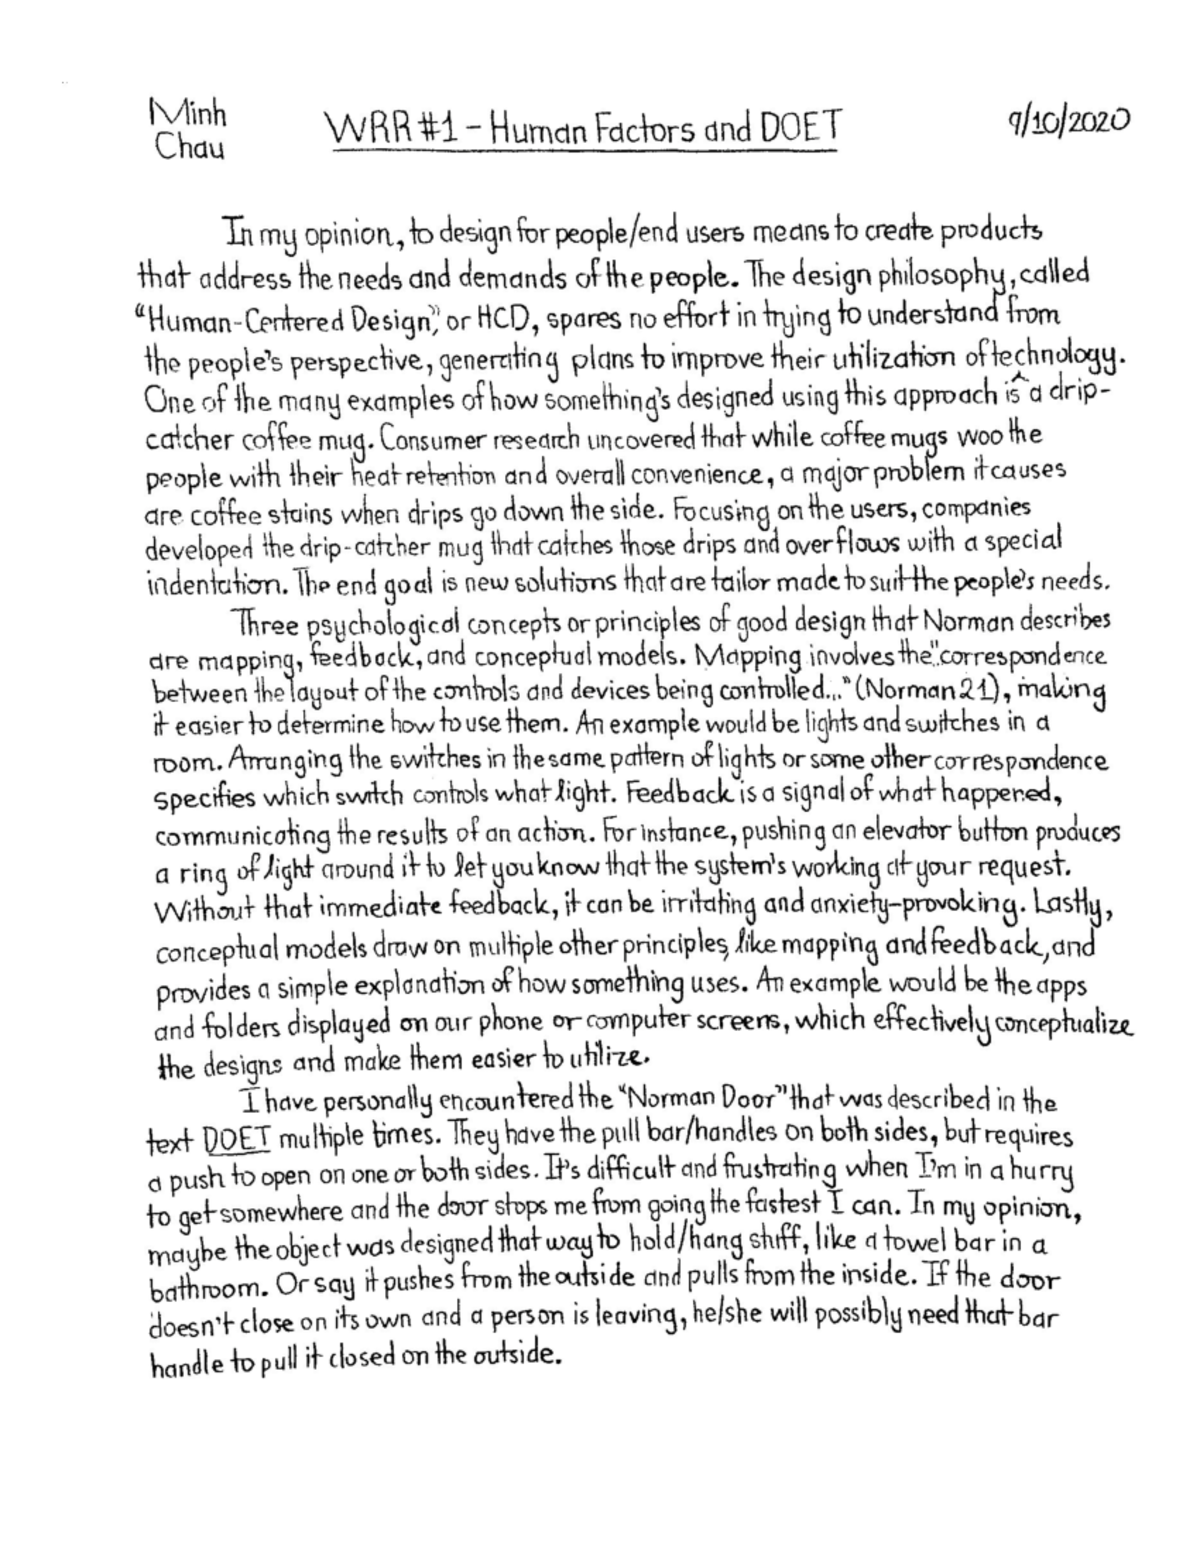 Minh
Chau
WRR #1 - Human Factors and DOET
9/10/2020
In my opinion, to design for people/end users means to create products
that address the needs and demands of the people. The design philosophy, called
"Human-Centered Design," or HCD, spares no effort in trying to understand from
the people's perspective, generating plans to improve their utilization of technology.
One of the many examples of how something's designed using this approach is a drip-
catcher coffee mug. Consumer research uncovered that while coffee mugs woo the
people with their heat retention and overall convenience, a major problem it causes
are coffee stains when drips go down the side. Focusing on the users, companies
developed the drip-catcher mug that catches those drips and overflows with a special
indentation. The end goal is new solutions that are tailor made to suit the people's needs.
Three psychological concepts or principles of good design that Norman describes
are mapping, feedback, and conceptual models. Mapping involves the "..correspondence
between the layout of the controls and devices being controlled..." (Norman 21), making
it easier to determine how to use them. An example would be lights and switches in a
room. Arranging the switches in the same pattern of lights or some other correspondence
specifies which switch controls what light. Feedback is a signal of what happened,
communicating the results of an action. For instance, pushing an elevator button produces
a ring of light around it to let you know that the system's working at your request.
Without that immediate feedback, it can be irritating and anxiety-provoking. Lastly,
conceptual models draw on multiple other principles, like mapping and feedback, and
provides a simple explanation of how something uses. An example would be the apps
and folders displayed on our phone or computer screens, which effectively conceptualize
the designs and make them easier to utilize.
I have personally encountered the "Norman Door" that was described in the
text DOET multiple times. They have the pull bar/handles on both sides, but requires
a push to open on one or both sides. It's difficult and frustrating when I'm in a hurry
to get somewhere and the door stops me from going the fastest I can. In my opinion,
maybe the object was designed that way to hold/hang stuff, like a towel bar in a
bathroom. Or say it pushes from the outside and pulls from the inside. If the door
doesn't close on its own and a person is leaving, he/she will possibly need that bar
handle to pull it closed on the outside.